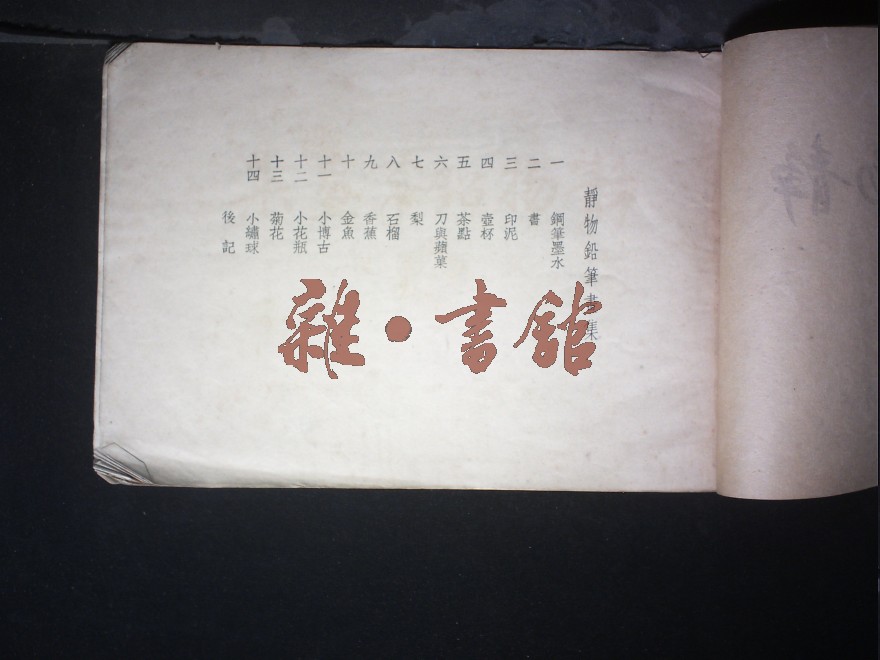 靜物鉛筆畫集
一 鋼筆墨水
二 書
三 印泥
四 壺杯
五 茶點
六 刀與蘋菓
七 梨
八 石榴
九 香蕉
十 金魚
十一 小博古
十二 小花瓶
十三 菊花
十四 小繡球
後記
雜·書館